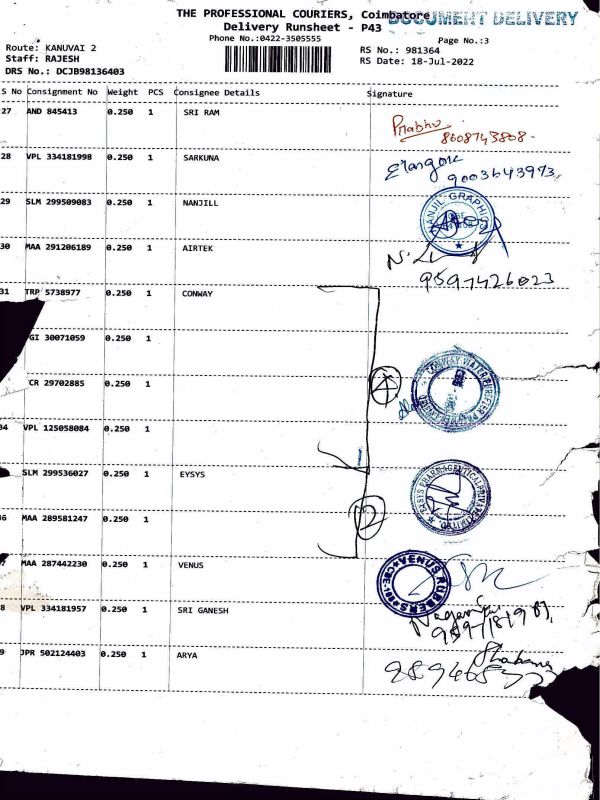 THE PROFESSIONAL COURIERS, Coimbatore
DOCUMENT DELIVERY
Delivery Runsheet - P43
Phone No.:0422-3505555
Page No.:3
Route: KANUVAI 2
RS No.: 981364
Staff: RAJESH
RS Date: 18-Jul-2022
DRS No.: DCJB98136403
S No Consignment No Weight PCS Consignee Details Signature
27 AND 845413 0.250 1 SRI RAM
Prabhu
8608743808
28 VPL 334181998 0.250 1 SARKUNA
9003643973
29 SLM 299509083 0.250 1 NANJILL
30 MAA 291206189 0.250 1 AIRTEK
9597426023
31 TRP 5738977 0.250 1 CONWAY
GI 30071059 0.250 1
CR 29702885 0.250 1
4
CONWAY WATER PURIFIER
34 VPL 125058084 0.250 1
SLM 299536027 0.250 1 EYSYS
36 MAA 289581247 0.250 1
2
7 MAA 287442230 0.250 1 VENUS
VENUS RUBBERS
8 VPL 334181957 0.250 1 SRI GANESH
9 JPR 502124403 0.250 1 ARYA